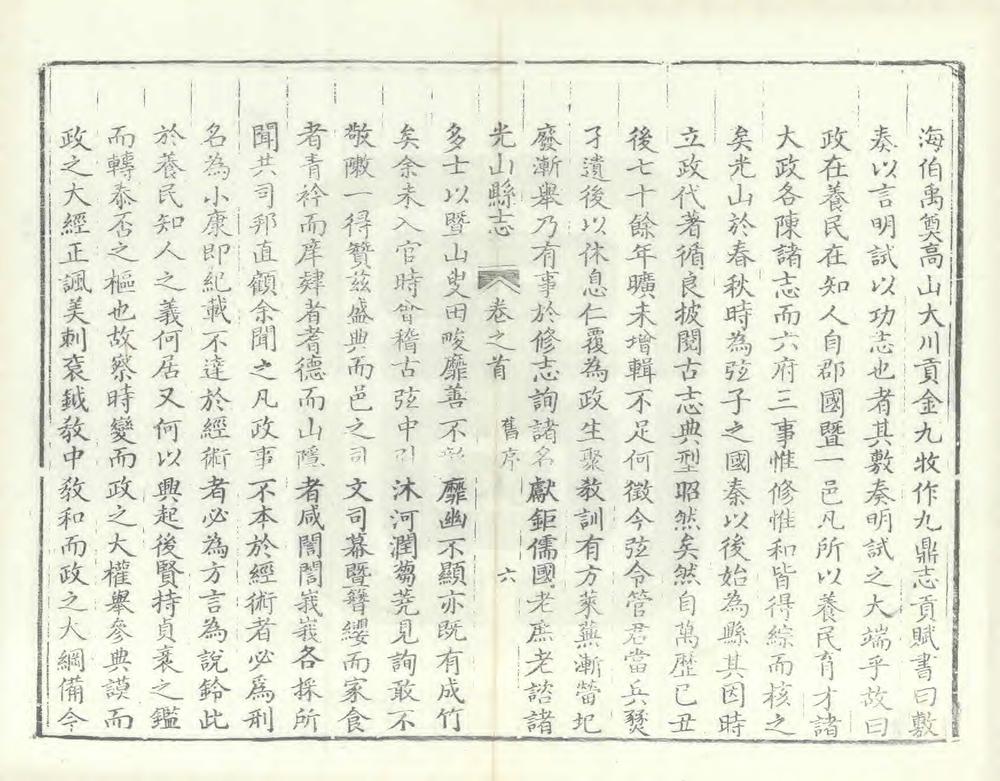 海伯禹奠高山大川貢金九牧作九鼎志貢賦書曰敷
奏以言明試以功志也者其敷奏明試之大端乎故曰
政在養民在知人自郡國暨一邑凡所以養民育才諸
大政各陳諸志而六府三事惟修惟和皆得綜而核之
矣光山於春秋時為弦子之國秦以後始為縣其因時
立政代著循良披閱古志典型昭然矣然自萬歷已丑
後七十餘年曠未增輯不足何徵今弦令管君當兵燹
孑遺後以休息仁覆為政生聚教訓有方萊蕪漸菑圮
廢漸舉乃有事於修志詢諸名獻鉅儒國老庶老諮諸
光山縣志 卷之首 舊序 六
多士以暨山叟田畯靡善不彰靡幽不顯亦既有成竹
矣余未入官時嘗稽古弦中引沐河潤蒭蕘見詢敢不
敬敶一得贊兹盛典而邑之司文司幕暨簪纓而家食
者青衿而庠肄者耆德而山隱者咸誾誾峩峩各採所
聞共司邦直顧余聞之凡政事不本於經術者必爲刑
名為小康即紀載不達於經術者必為方言為說鈴此
於養民知人之義何居又何以興起後賢持貞衰之鑑
而轉泰否之樞也故察時變而政之大權舉參典謨而
政之大經正諷美刺袞鉞敎中敎和而政之大綱備今